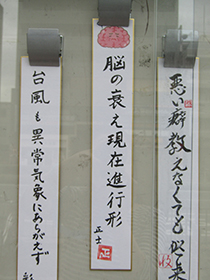 悪い癖教えなくても似
脳の衰え現在進行形
正士
台風も異常気象にあらがえず
彰